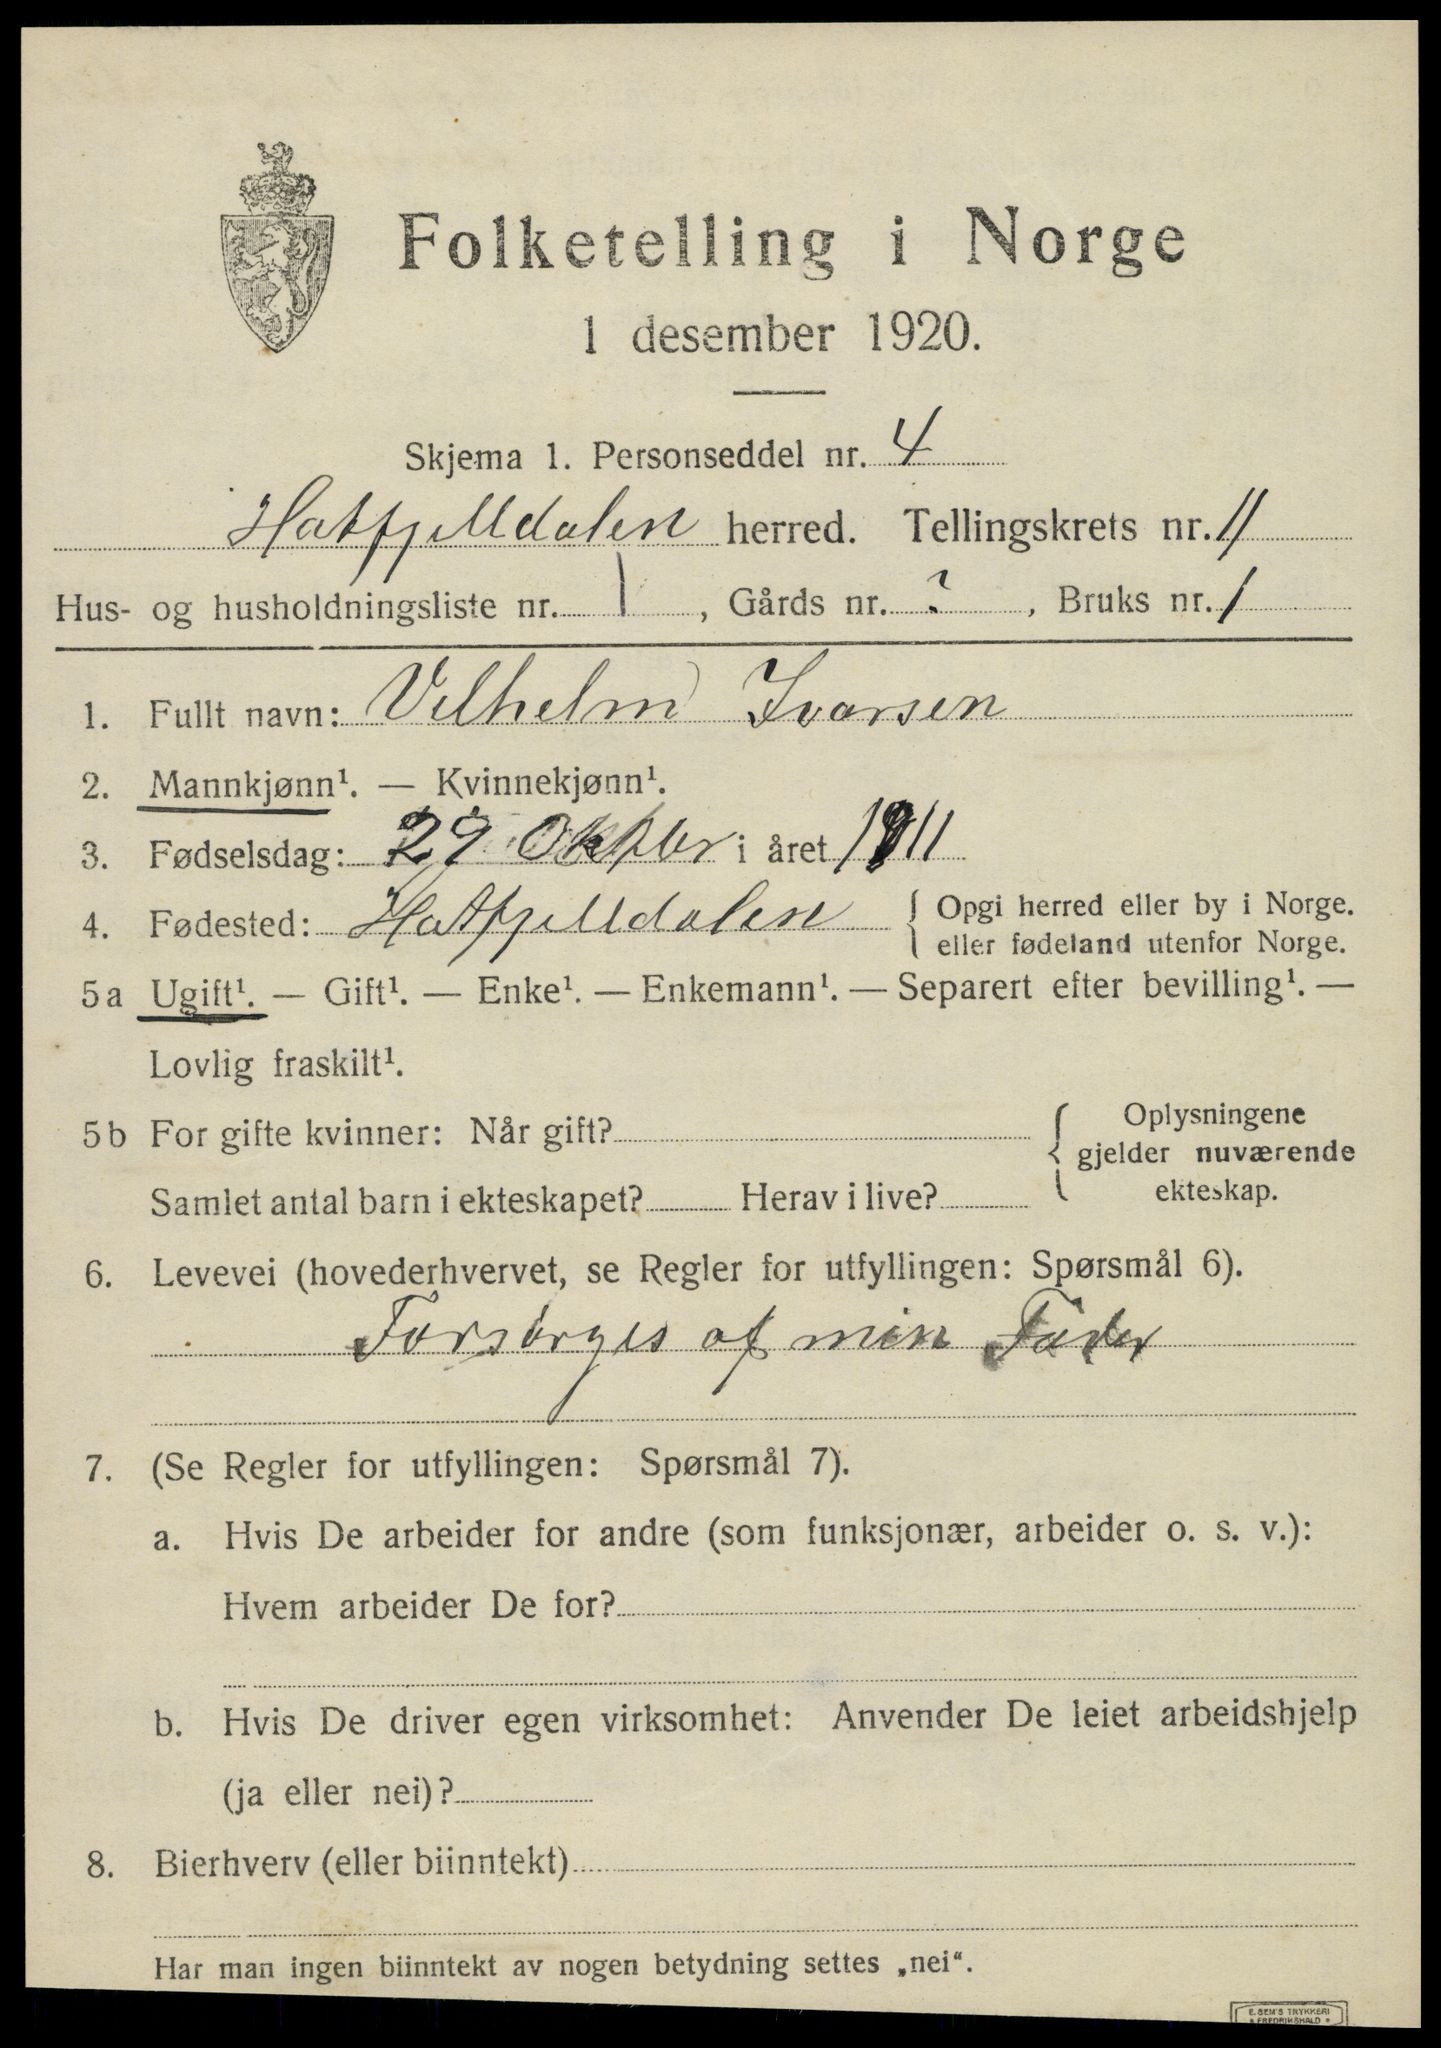 Folketelling i Norge
1 desember 1920.
Skjema 1. Personseddel nr. 4
Hatfjelldalen herred. Tellingskrets nr. 11
Hus- og husholdningsliste nr. 1, Gårds nr. ?, Bruks nr. 1
1. Fullt navn: Vilhelm Ivarsen
2. Mannkjønn¹. — Kvinnekjønn¹.
3. Fødselsdag: 29 Oktbr i året 1911
4. Fødested: Hatfjelldalen { Opgi herred eller by i Norge.
eller fødeland utenfor Norge.
5a Ugift¹. — Gift¹. — Enke¹. — Enkemann¹. — Separert efter bevilling¹. —
Lovlig fraskilt¹.
5b For gifte kvinner: Når gift? { Oplysningene
gjelder nuværende
Samlet antal barn i ekteskapet? Herav i live? ekteskap.
6. Levevei (hovederhvervet, se Regler for utfyllingen: Spørsmål 6).
Forsørges af min Fader
7. (Se Regler for utfyllingen: Spørsmål 7).
a. Hvis De arbeider for andre (som funksjonær, arbeider o. s. v.):
Hvem arbeider De for?
b. Hvis De driver egen virksomhet: Anvender De leiet arbeidshjelp
(ja eller nei)?
8. Bierhverv (eller biinntekt)
Har man ingen biinntekt av nogen betydning settes „nei“.
E. SEM'S TRYKKERI
FREDRIKSHALD